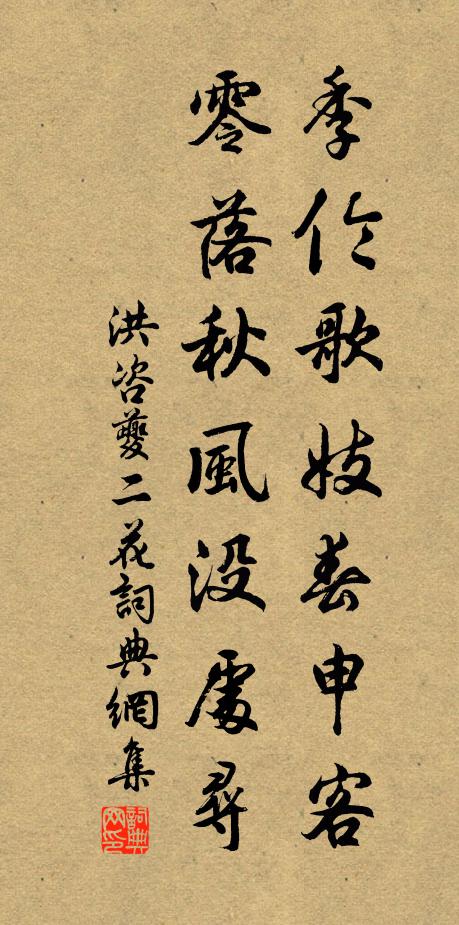 季伦歌妓春申客
零落秋風没處尋
洪咨夔二花詞典網集
詞典网印